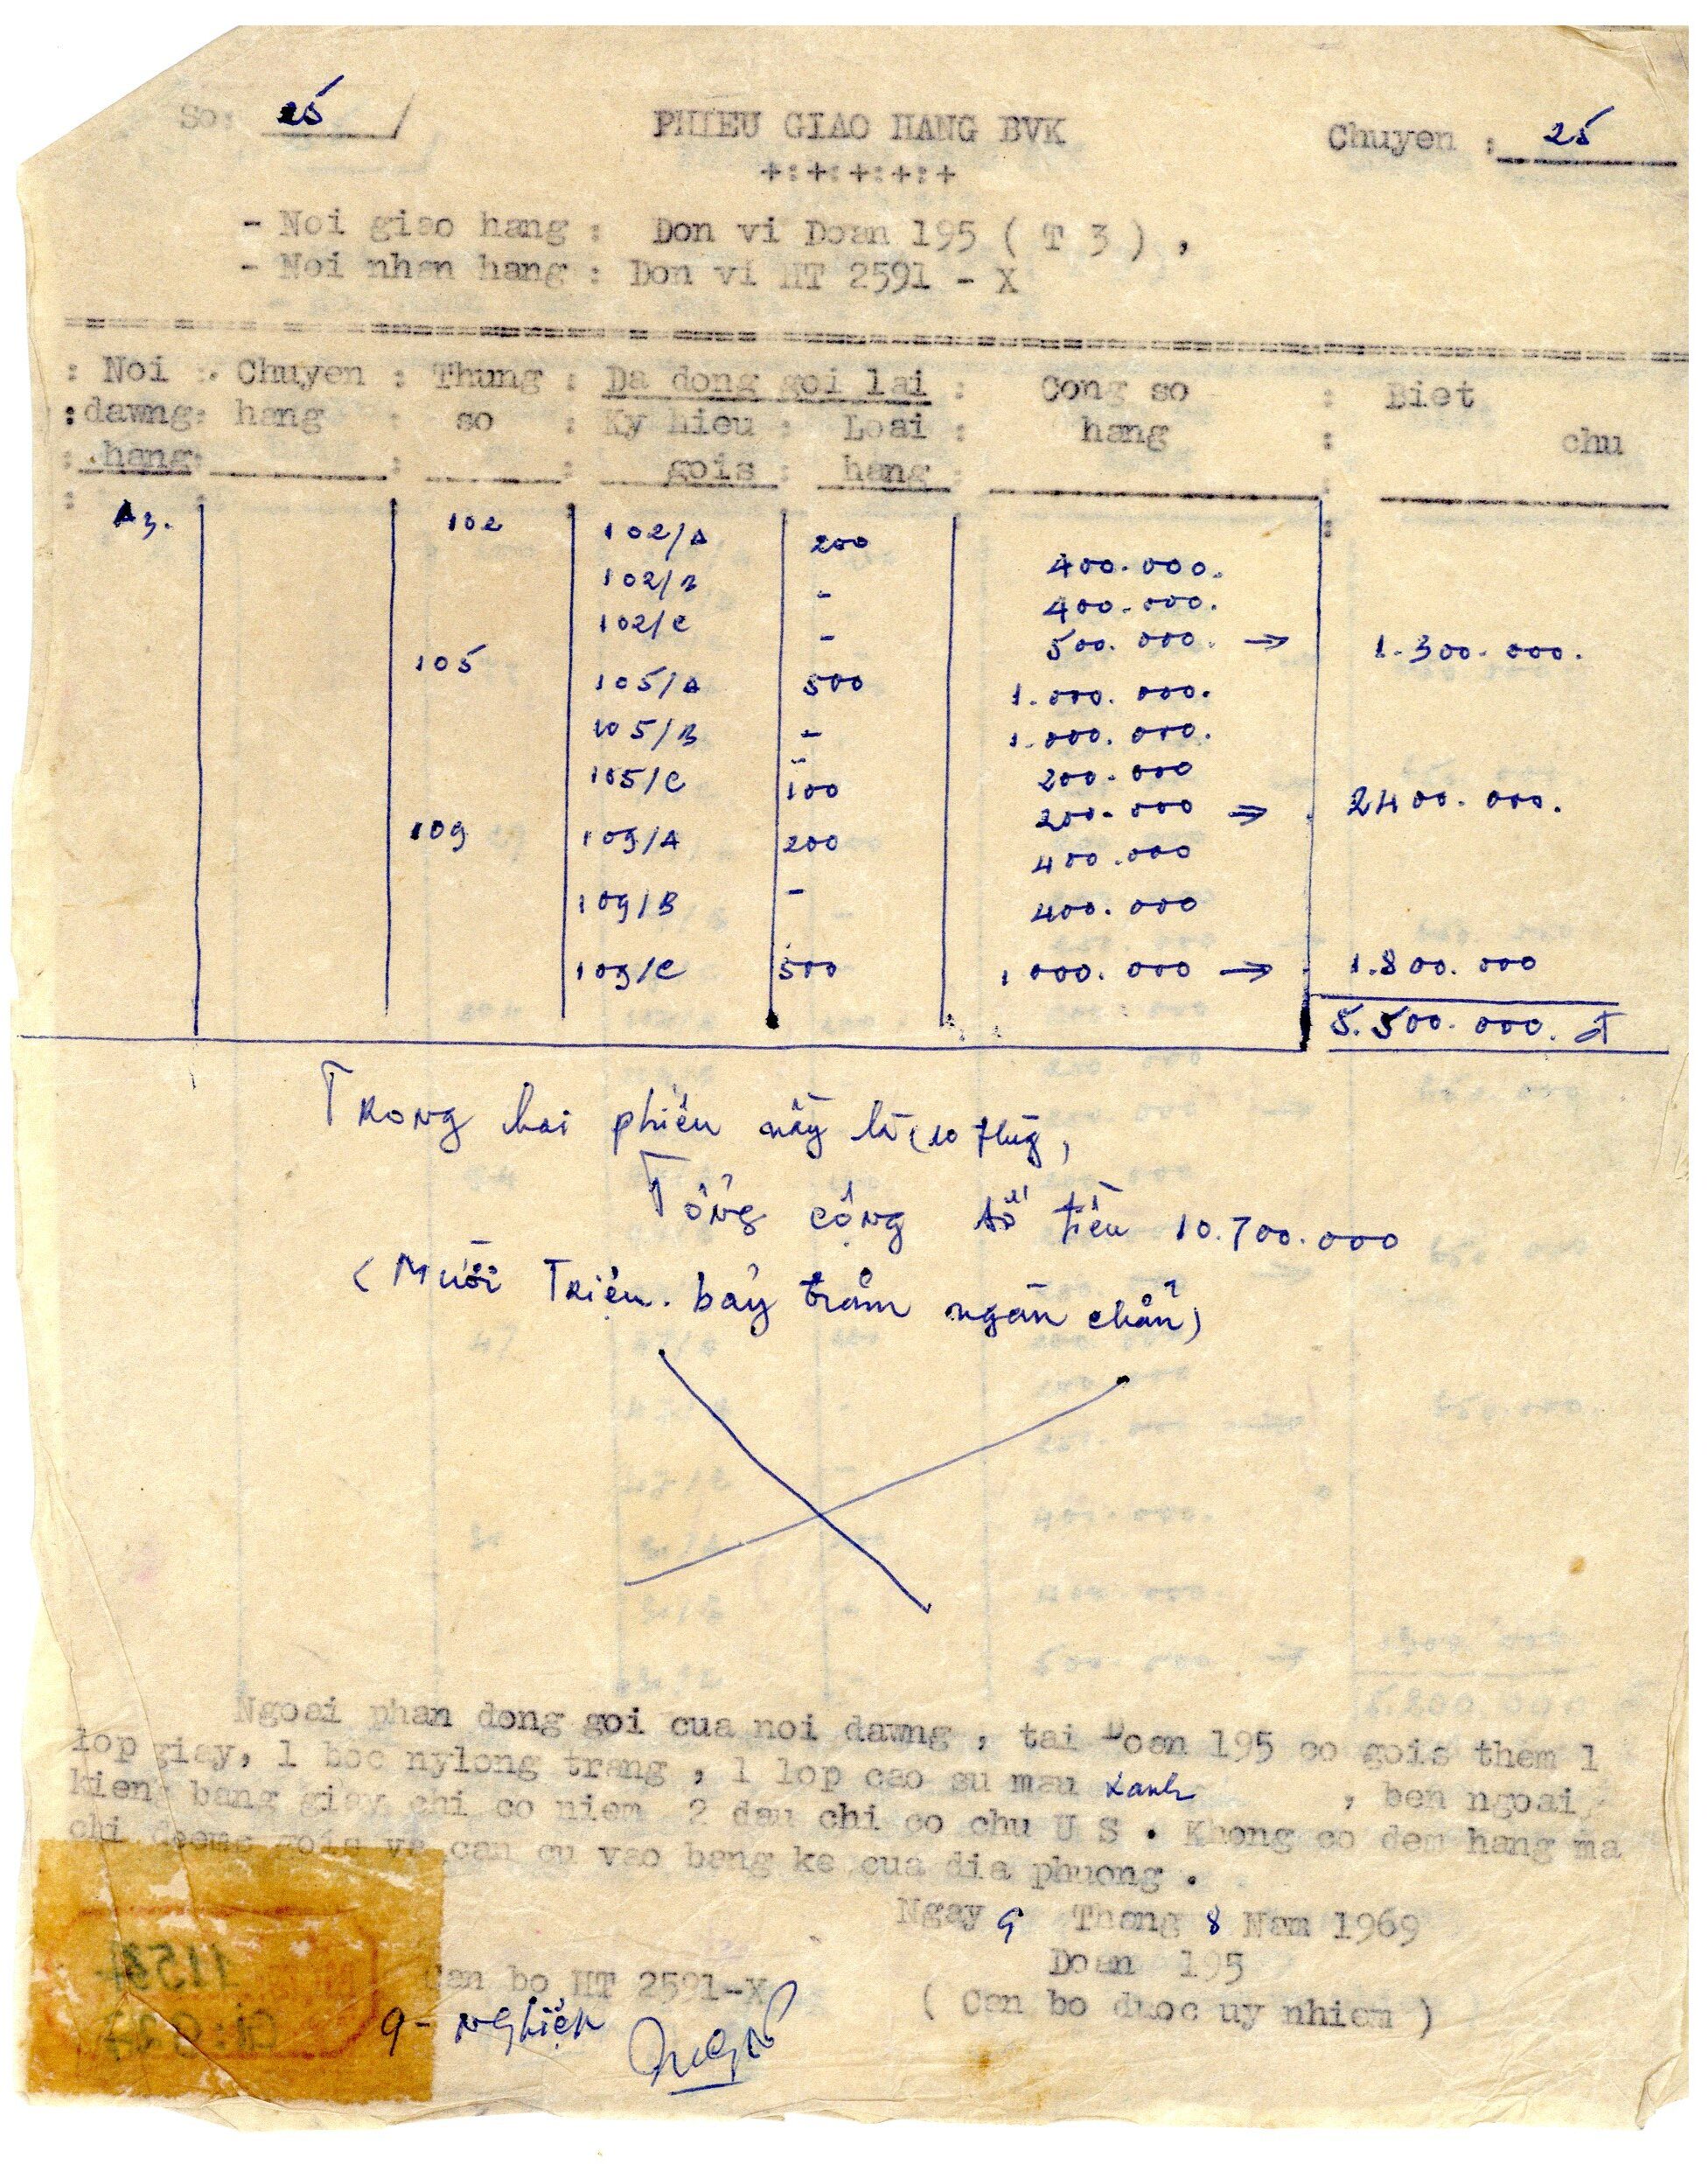 So: 25
PHIEU GIAO HANG BVK
Chuyen : 25
+:+:+:+:+
- Noi giao hang : Don vi Doan 195 ( T 3 ) ,
- Noi nhan hang : Don vi HT 2591 - X
: Noi : Chuyen : Thung : Da dong goi lai : Cong so : Biet
: dawng: hang : so : Ky hieu : Loai : hang : chu
: hang: : : gois : hang :
A3. 102 102/A 200 400.000.
102/B - 400.000.
102/C - 500.000. → 1.300.000.
105 105/A 500 1.000.000.
105/B - 1.000.000.
105/C 100 200.000
200.000 ⇒ 2400.000.
109 109/A 200 400.000
109/B - 400.000
109/C 500 1000.000 → 1.800.000
5.500.000. đ
Trong hai phiếu nầy là (10 thùg,
Tổng cộng số tiền 10.700.000
(Mười Triệu. bảy trăm ngàn chẵn)
Ngoai phan dong goi cua noi dawng , tai Doan 195 co gois them 1
lop giay, 1 boc nylong trang , 1 lop cao su mau xanh , ben ngoai
kieng bang giay chi co niem 2 dau chi co chu U S . Khong co dem hang ma
chi deems gois va can cu vao bang ke cua dia phuong .
Ngay 9 Thang 8 Nam 1969
Can bo HT 2591-X
Doan 195
( Can bo duoc uy nhiem )
9- Nghiệp